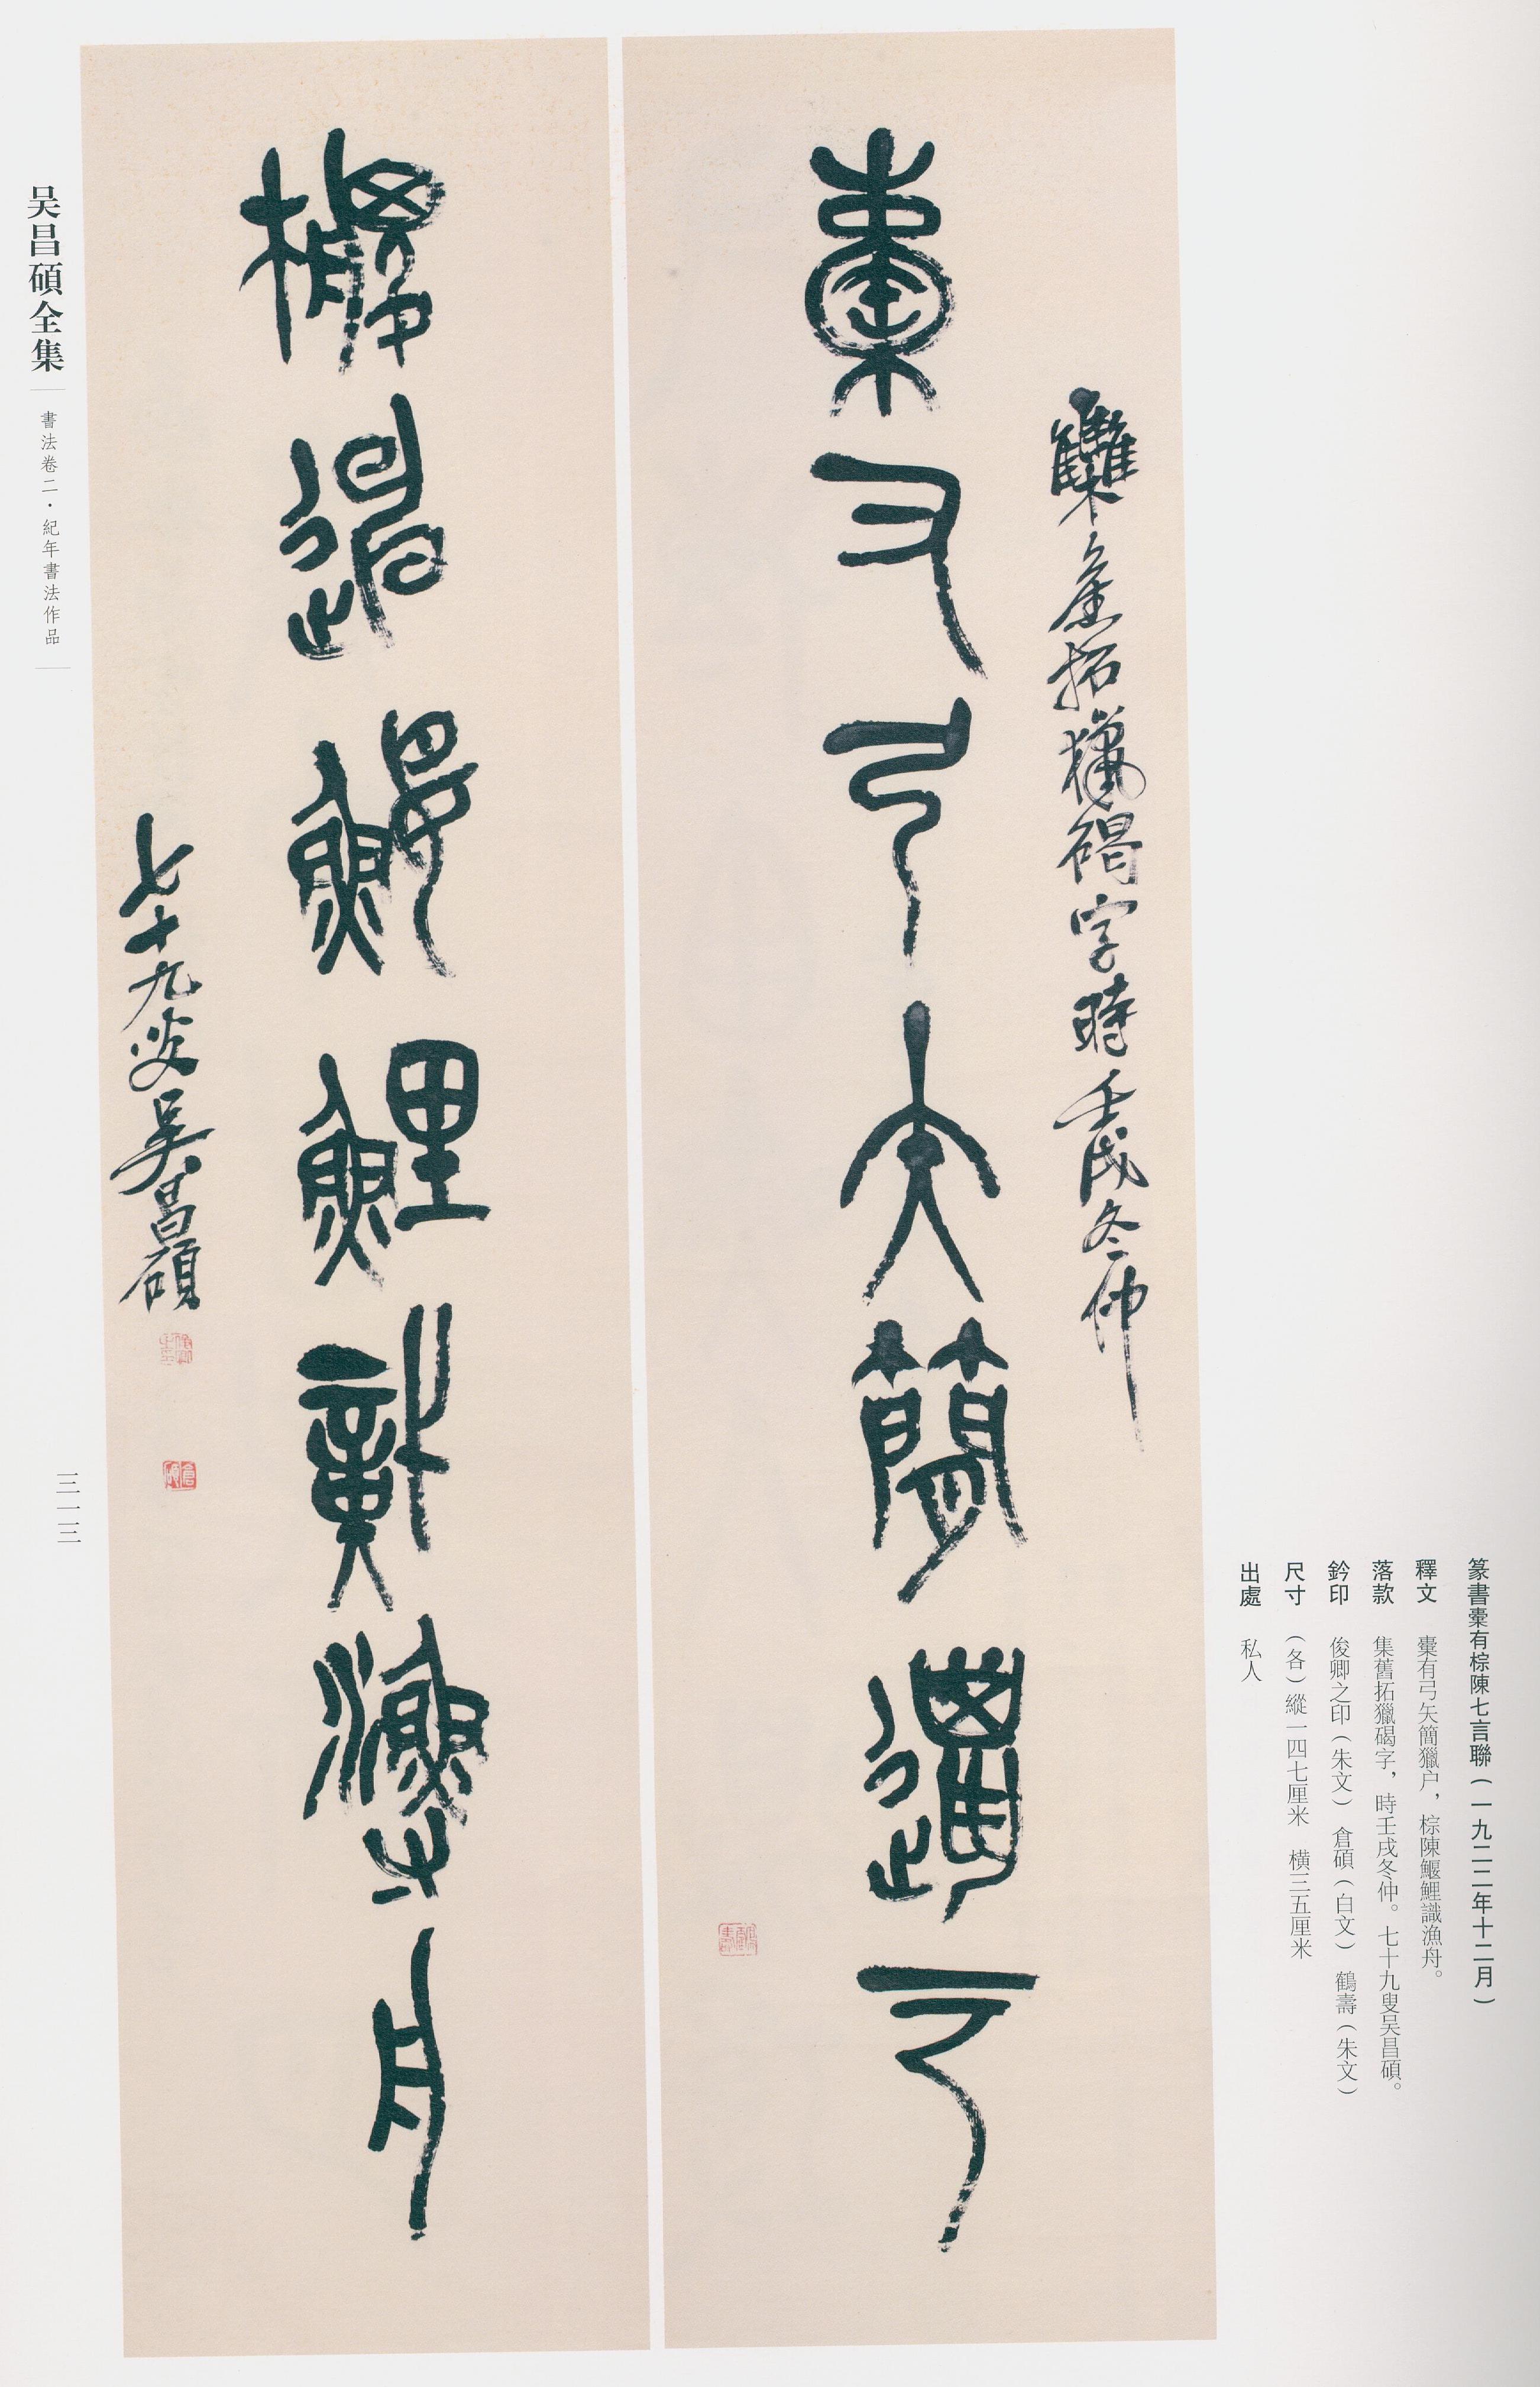 篆書橐有棕陳七言聯(一九二二年十二月)
釋文 橐有弓矢簡獵户,棕陳鰋鯉識漁舟。
落款 集舊拓獵碣字,時壬戌冬仲。七十九叟吴昌碩。
鈐印 俊卿之印(朱文) 倉碩(白文) 鶴壽(朱文)
尺寸 (各)縱一四七厘米 横三五厘米
出處 私人
集舊拓獵碣字時壬戌冬仲
橐有弓矢簡獵户
棕陳鰋鯉識漁舟
七十九叟吴昌碩
俊卿之印
倉碩
吴昌碩全集
書法卷二·紀年書法作品
三一三